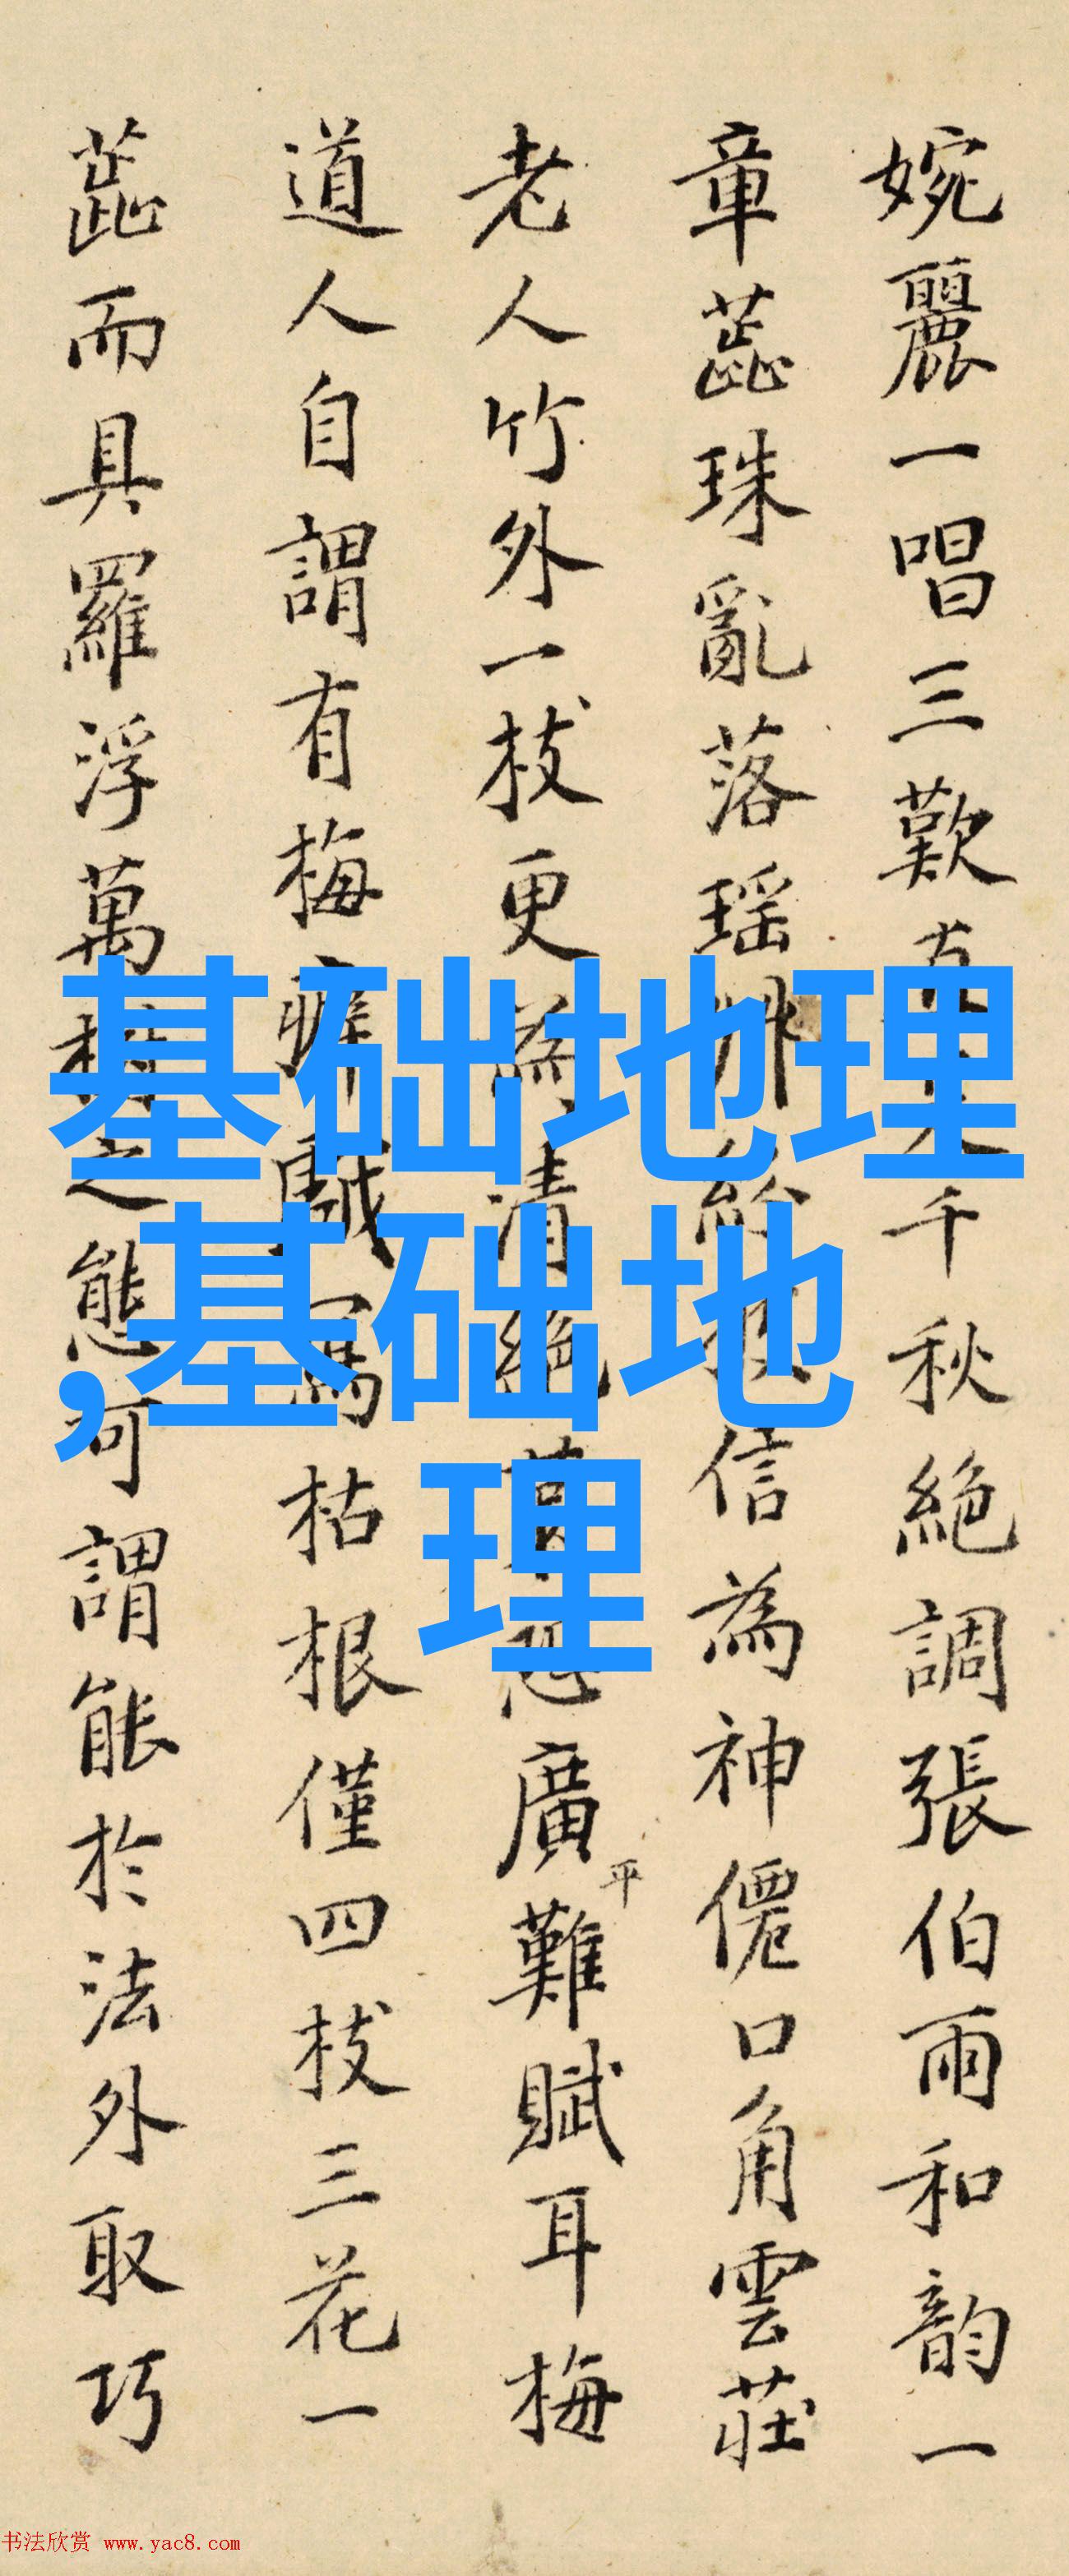 婉麗一唱三歎
千秋絕調張伯雨和韵一
章蕋珠亂落瑶
信為神僊口角雲莊
老人竹外一枝更為清絕
廣平難賦耳梅
道人自謂有梅癖
寫枯根僅四枝三花一
蕋而具羅浮萬樹之態可謂能於法外取巧
基础地理
,基础地
理
书法欣赏 www.yac8.com